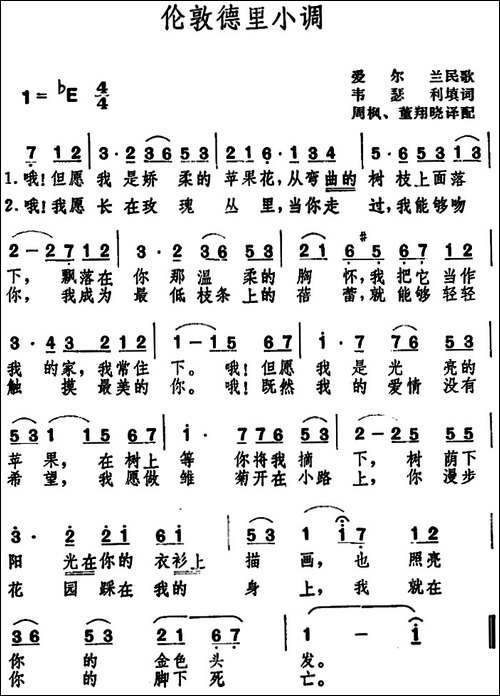 伦敦德里小调
爱尔兰民歌
1=ᵇE 4/4 韦瑟利填词
周枫、董翔晓译配
7 12 3·2 36 53 216·134 5·6 53 13
1.哦!但愿我是娇柔的苹果花,从弯曲的树枝上面落
2.哦!我愿长在玫瑰丛里,当你走过,我能够吻
2-2712 3·2 36 53 21 6#5 67
下,飘落在你那温柔的胸怀,我把它当作
你,我成为最低枝条上的蓓蕾,就能够轻轻
3·43 212 1-15 67 1·76 53
我的家,我常住下。哦!但愿我是光亮的
触摸最美的你。哦!既然我的爱情没有
531 15 67 1·76 5313 2-2 53
苹果,在树上等你将我摘下,树荫下
希望,我愿做雏菊开在小路上,你漫步
3·2 21 61 53 1-17 12
阳光在你的衣衫上描画,也照亮
花园踩在我的身上,我就在
36 53 21 67 1-1
你的金色头发。
你的脚下死亡。